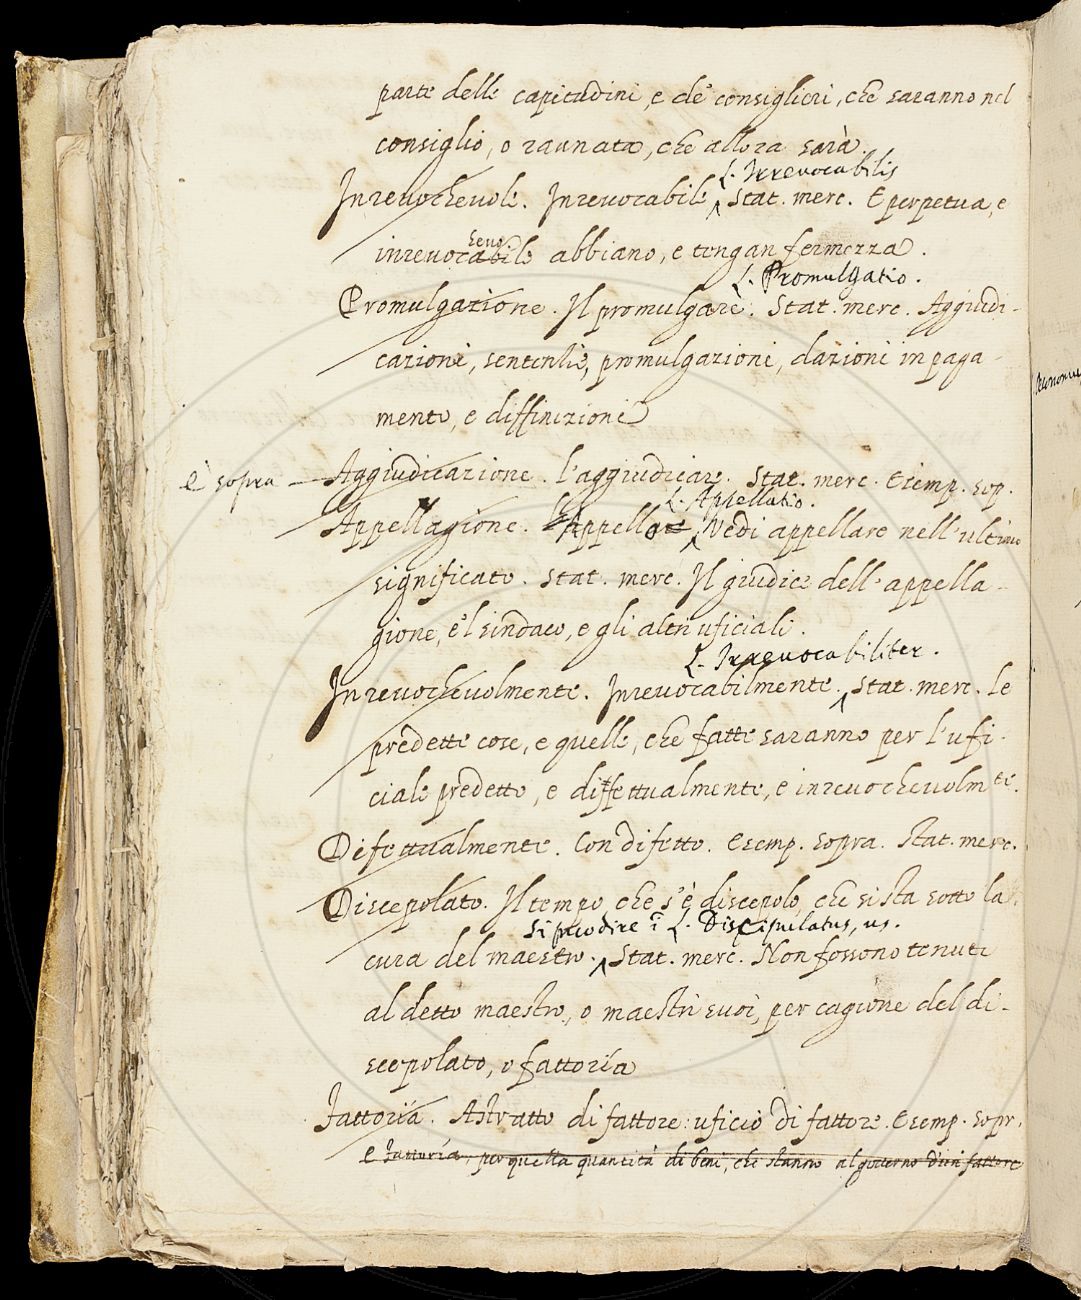 parte delle capitudini, e de' consiglieri, che saranno nel
consiglio, o raunata, che allora sarà.
L. Irrevocabilis
Inrevochevole. Inrevocabile. Stat. merc. E perpetua, e
hevo
inrevocabile abbiano, e tengan fermezza.
L. Promulgatio.
Promulgazione. Il promulgare. Stat. merc. Aggiudi-
cazioni, sentenzie, promulgazioni, dazioni in paga-
mento, e diffinizioni
è sopra Aggiudicazione. L'aggiudicare. Stat. merc. Esemp. sop.
L. Appellatio.
Appellagione. Appello Vedi appellare nell'ultimo
significato. Stat. merc. Il giudice dell'appella-
gione, e'l sindaco, e gli altri uficiali.
L. Irrevocabiliter.
Inrevochevolmente. Inrevocabilmente. Stat. merc. Le
predette cose, e quelle, che fatte saranno per l'ufi-
ciale predetto, e diffettualmente, e inrevochevolmte.
Difettualmente. Con difetto. Esemp. sopra. Stat. merc.
Discepolato. Il tempo che s'è discepolo, che si sta sotto la
si può dire i L. Discipulatus, us.
cura del maestro. Stat. merc. Non fossono tenuti
al detto maestro, o maestri suoi, per cagione del di-
scepolato, o fattoria
Fattoria. Astratto di fattore: uficio di fattore. Esemp. sopr.
e fattoria, per quella quantità di beni, che stanno al governo d'un fattore